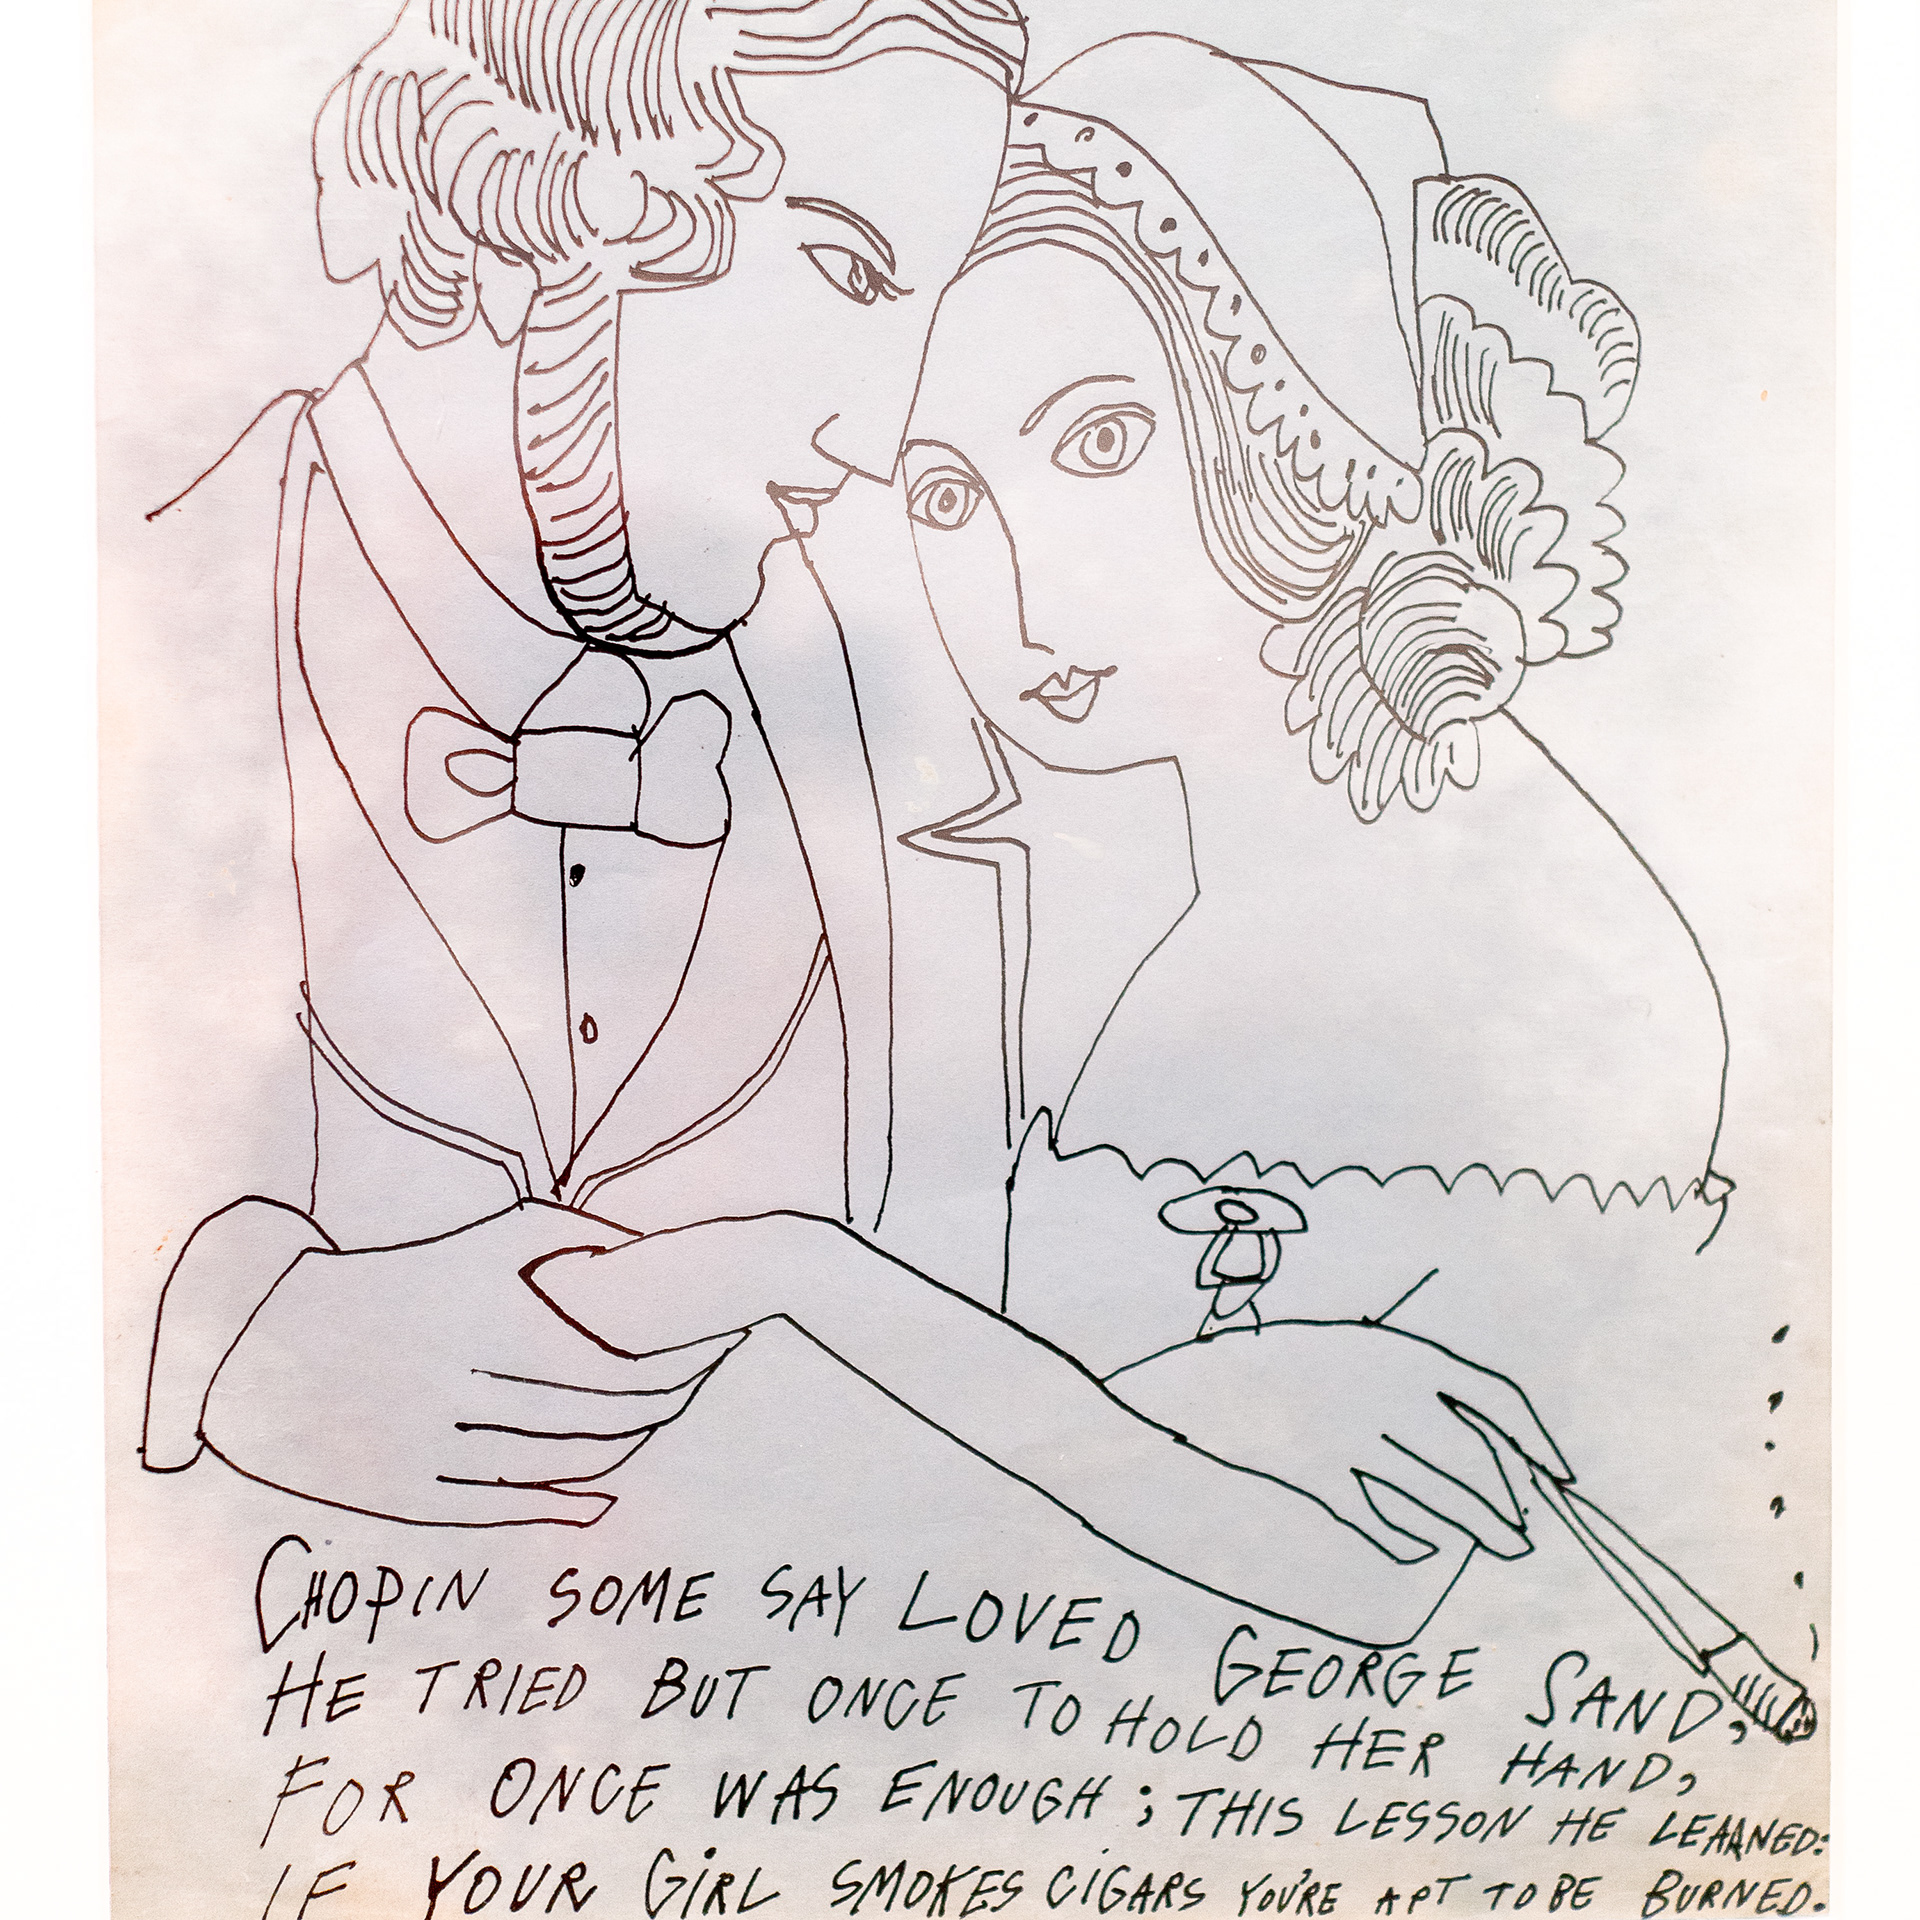 CHOPIN SOME SAY LOVED GEORGE SAND,
HE TRIED BUT ONCE TO HOLD HER HAND,
FOR ONCE WAS ENOUGH; THIS LESSON HE LEARNED:
IF YOUR GIRL SMOKES CIGARS YOU'RE APT TO BE BURNED.